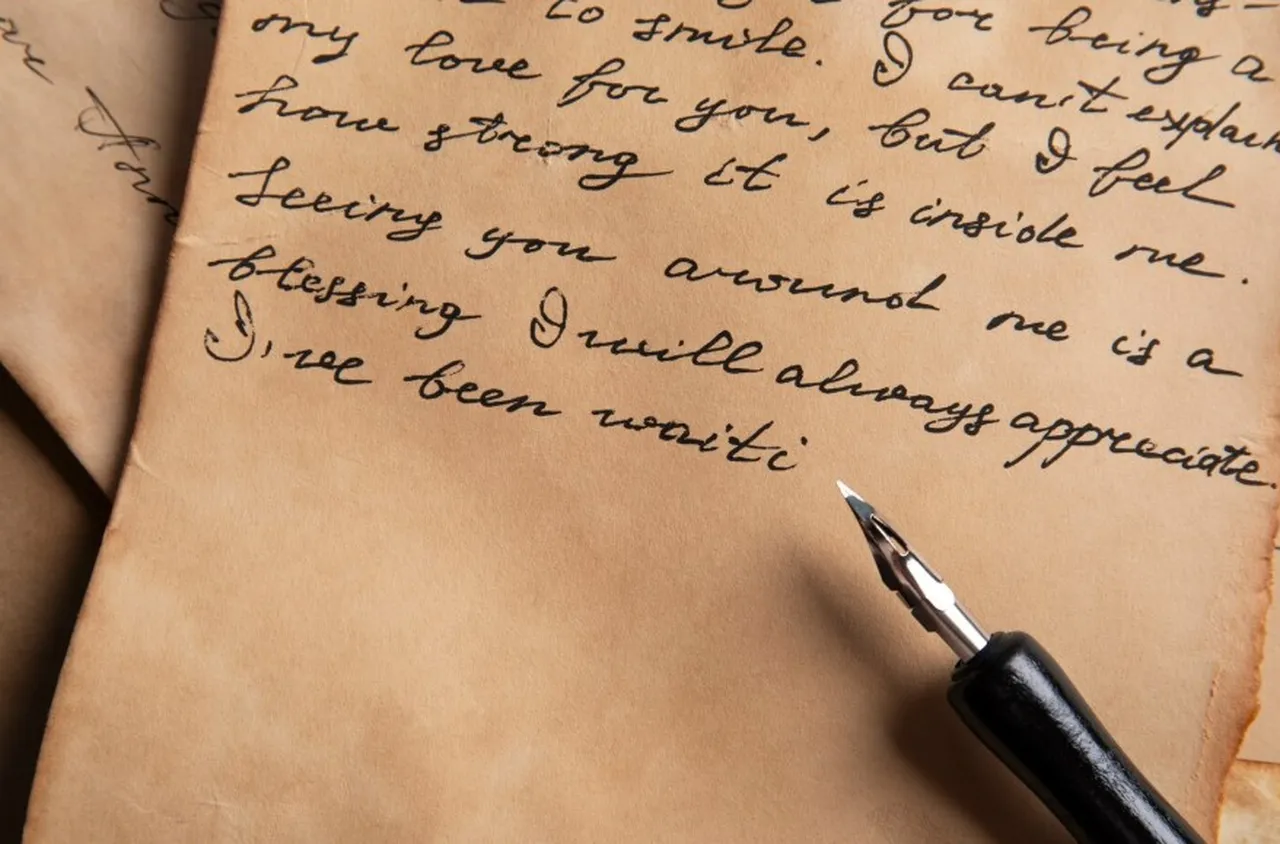 for being a
to smile. I can't explain
my love for you, but I feel
how strong it is inside me.
Seeing you around me is a
blessing I will always appreciate.
I've been waiti